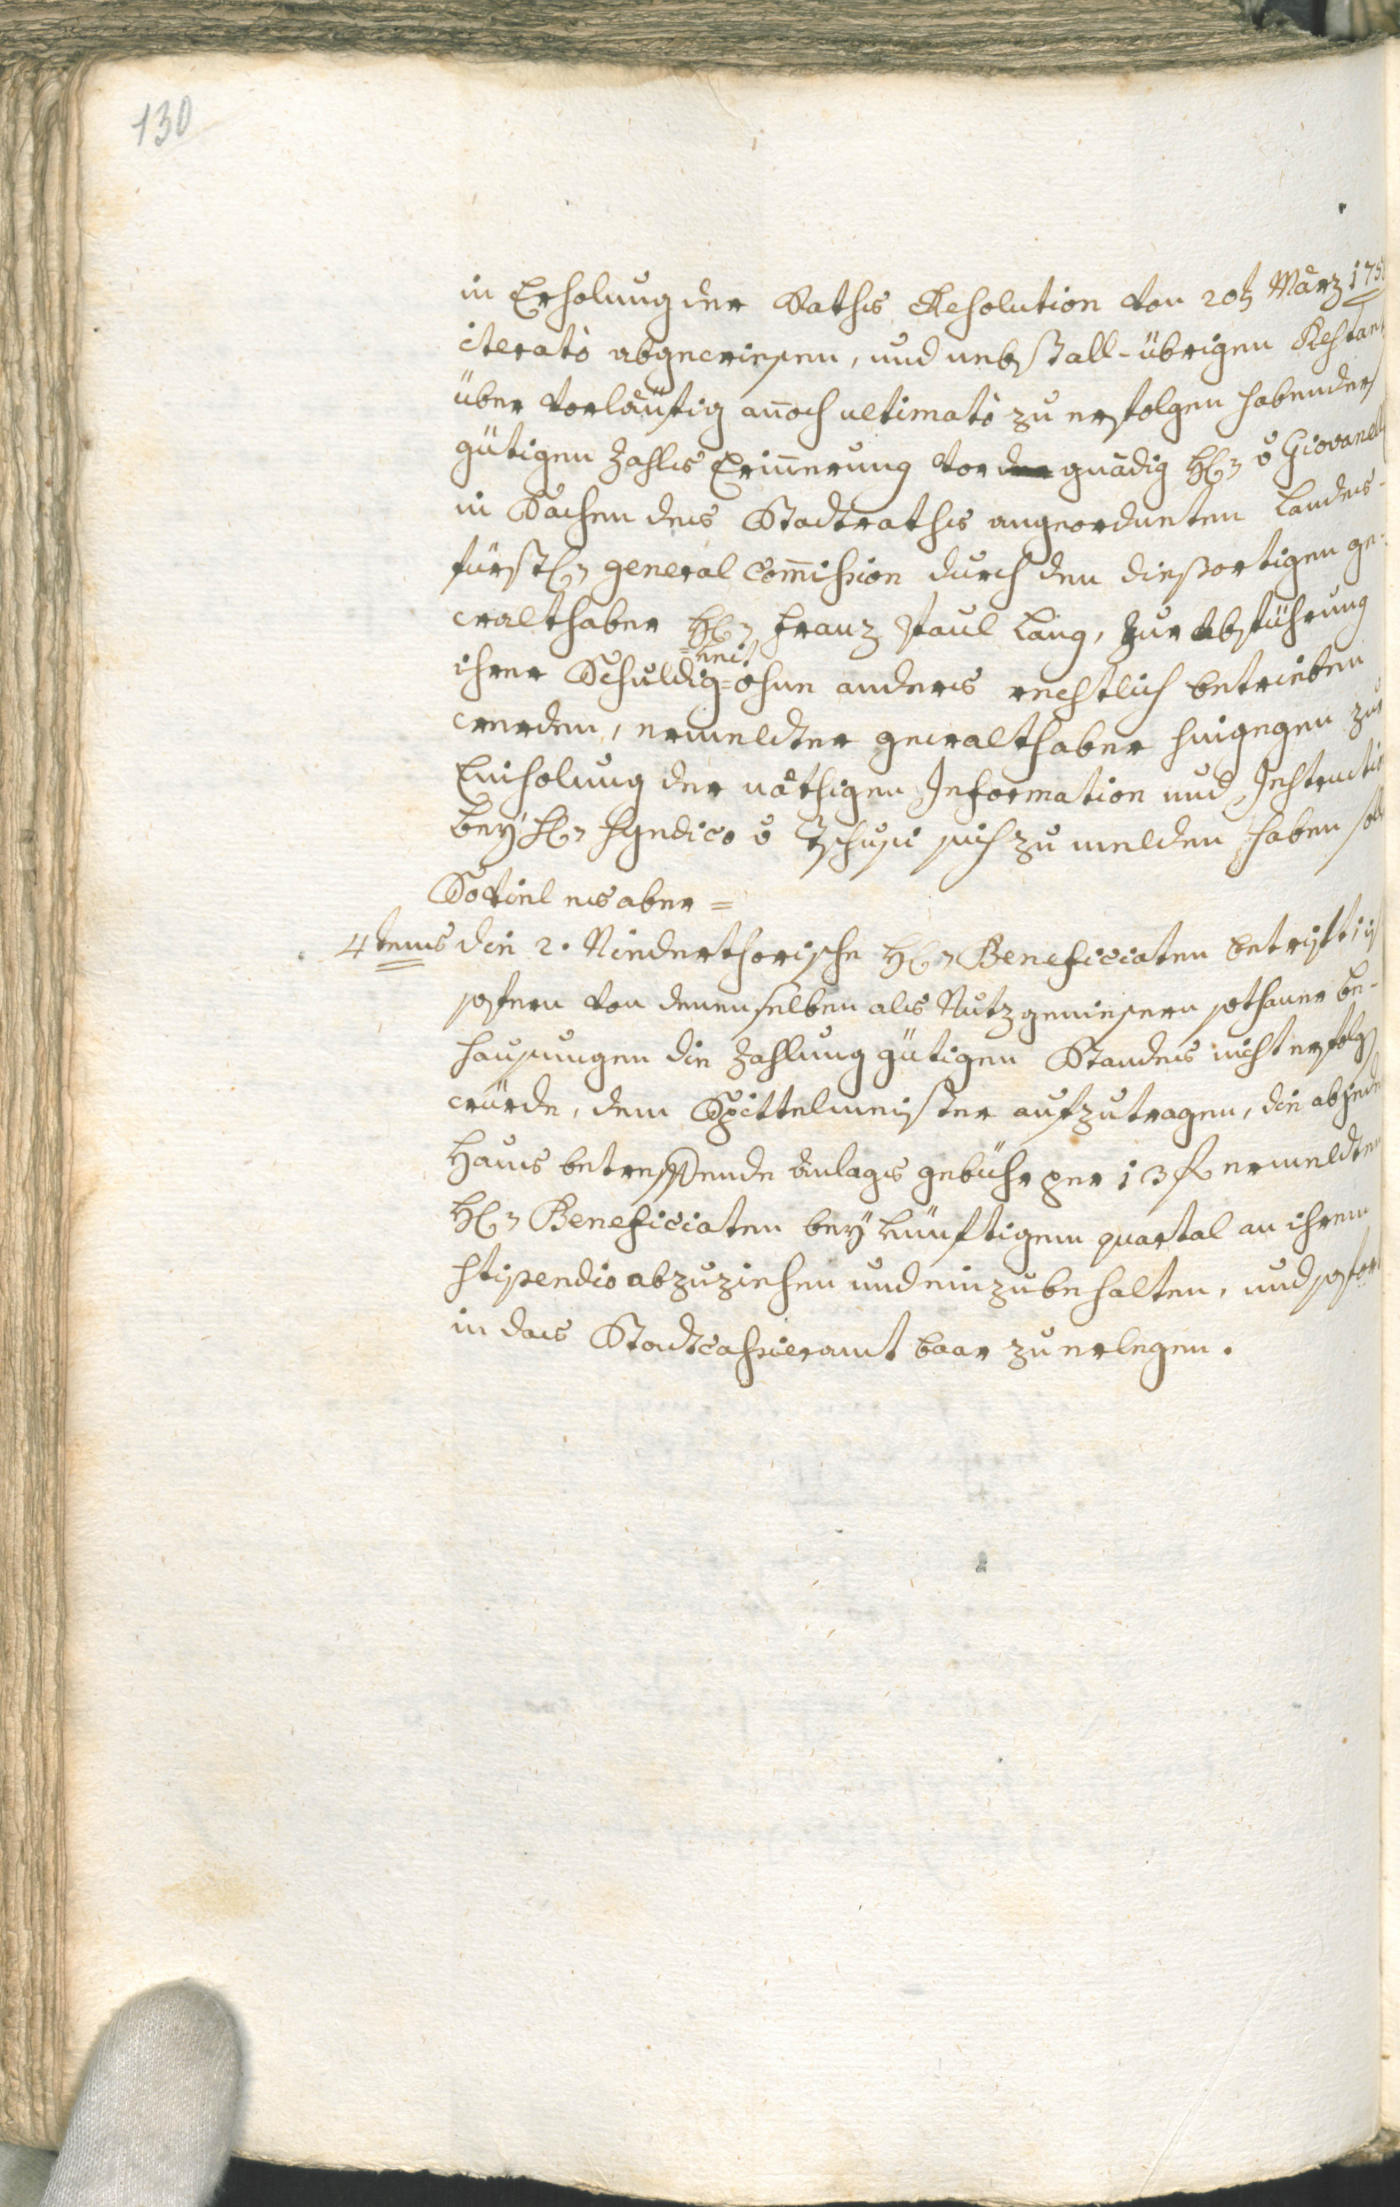 130
in Erholung der Raths Resolution von 20t März 175
iterato abgewiesen, und nebst all-übrigen Restant
über vorläufig annoch ultimato zu erfolgen habender
gütigen Zahls Erinnerung vor gnädig H: v Giovanelli
in Sachen des Stadtraths angeordneten Landes-
fürstl: general Commission durch den diesortigen ge-
walthaber H: Franz Paul Lang, zur Abführung
ihrer Schuldig=keit ohne anders rechtlich betrieben
werden, ermeldter gewalthaber hingegen zur
Einholung der nöthigen Information und Instructio
bey H: Syndico v Tschusi sich zu melden haben soll
Soviel es aber =
4tens die 2. Niederthorische H: Beneficiaten betrift, ist
sofern von denenselben als Nutzgeniesern sothaner be-
hausungen die Zahlung gütigen Standes nicht erfolg
würde, dem Spittelmeister aufzutragen, die ab jede
Haus betreffende Anlags gebühr per 13 f ermeldten
H: Beneficiaten bey künftigem quartal an ihrem
stipendio abzuziehen und einzubehalten, und sofort
in das Stadtcassieramt baar zu erlegen.